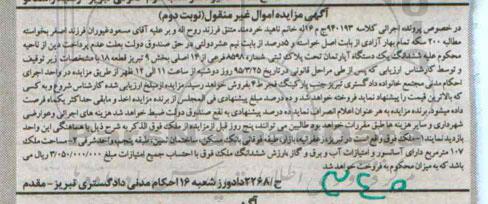 آگهی مزایده اموال غیر منقول (نوبت دوم)
در خصوص پرونده اجرائی کلاسه ۹۴۰۱۹۳ ج ۱۶ له خانم ناهید خردمند متنق فرزند روح اله و بر علیه آقای مسعود غیوران فرزند اصغر بخواسته
مطالبه ۲۰۰ سکه تمام بهار آزادی از بابت اصل خواسته و ۵ درصد از بابت نیم عشر دولتی در حق صندوق دولت بعلت عدم پرداخت دین از ناحیه
محکوم علیه ششدانگ یک دستگاه آپارتمان تحت پلاک ثبتی شماره ۸۵۹۸ فرعی از ۱۴ اصلی بخش ۹ تبریز قطعه ۱۸ با مشخصات زیر توقیف
و توسط کارشناس ارزیابی که پس از طی مراحل قانونی در تاریخ ۹۵/۳/۲۵ روز دوشنبه از ساعت ۱۱ الی ۱۲ ظهر از طریق مزایده در واحد اجرای
احکام مدنی مجتمع خانواده دادگستری تبریز جنب پارکینگ فجر ۴ بفروش خواهد رسید. مزایده از مبلغ ارزیابی شده کارشناس شروع و به کسی
که بالاترین قیمت را پیشنهاد نماید فروخته خواهد شد و ده درصد مبلغ پیشنهادی فی المجلس از برنده مزایده اخذ و مابقی حداکثر یکماه فرصت
داده میشود. برنده مزایده به هر عنوان اعلام انصراف نماید ده درصد پیشنهادی به نفع صندوق دولت ضبط خواهد شد هزینه های اجرائی و عوارضی
شهرداری و سایر هزینه ها طبق مقررات خواهد بود طالبین می توانند پنج روز قبل از مزایده از ملک فوق الذکر به شرح ذیل با هماهنگی این واحد
بازدید نمایند. ۱- ملک فوق واقع است در تبریز
۱۰۷ مترمربع دارای آسانسور و امتیازات آب و برق و گاز با ارزش ششدانگ ملک فوق با احتساب جمیع امتیازات مبلغ ۳/۰۵۰/۰۰۰/۰۰۰ ریال می
باشد که به میزان محکوم به فروخته خواهد شد
ح/۲۲۶۸ دادورز شعبه ۱۶ احکام مدنی دادگستری تبریز - مقدم